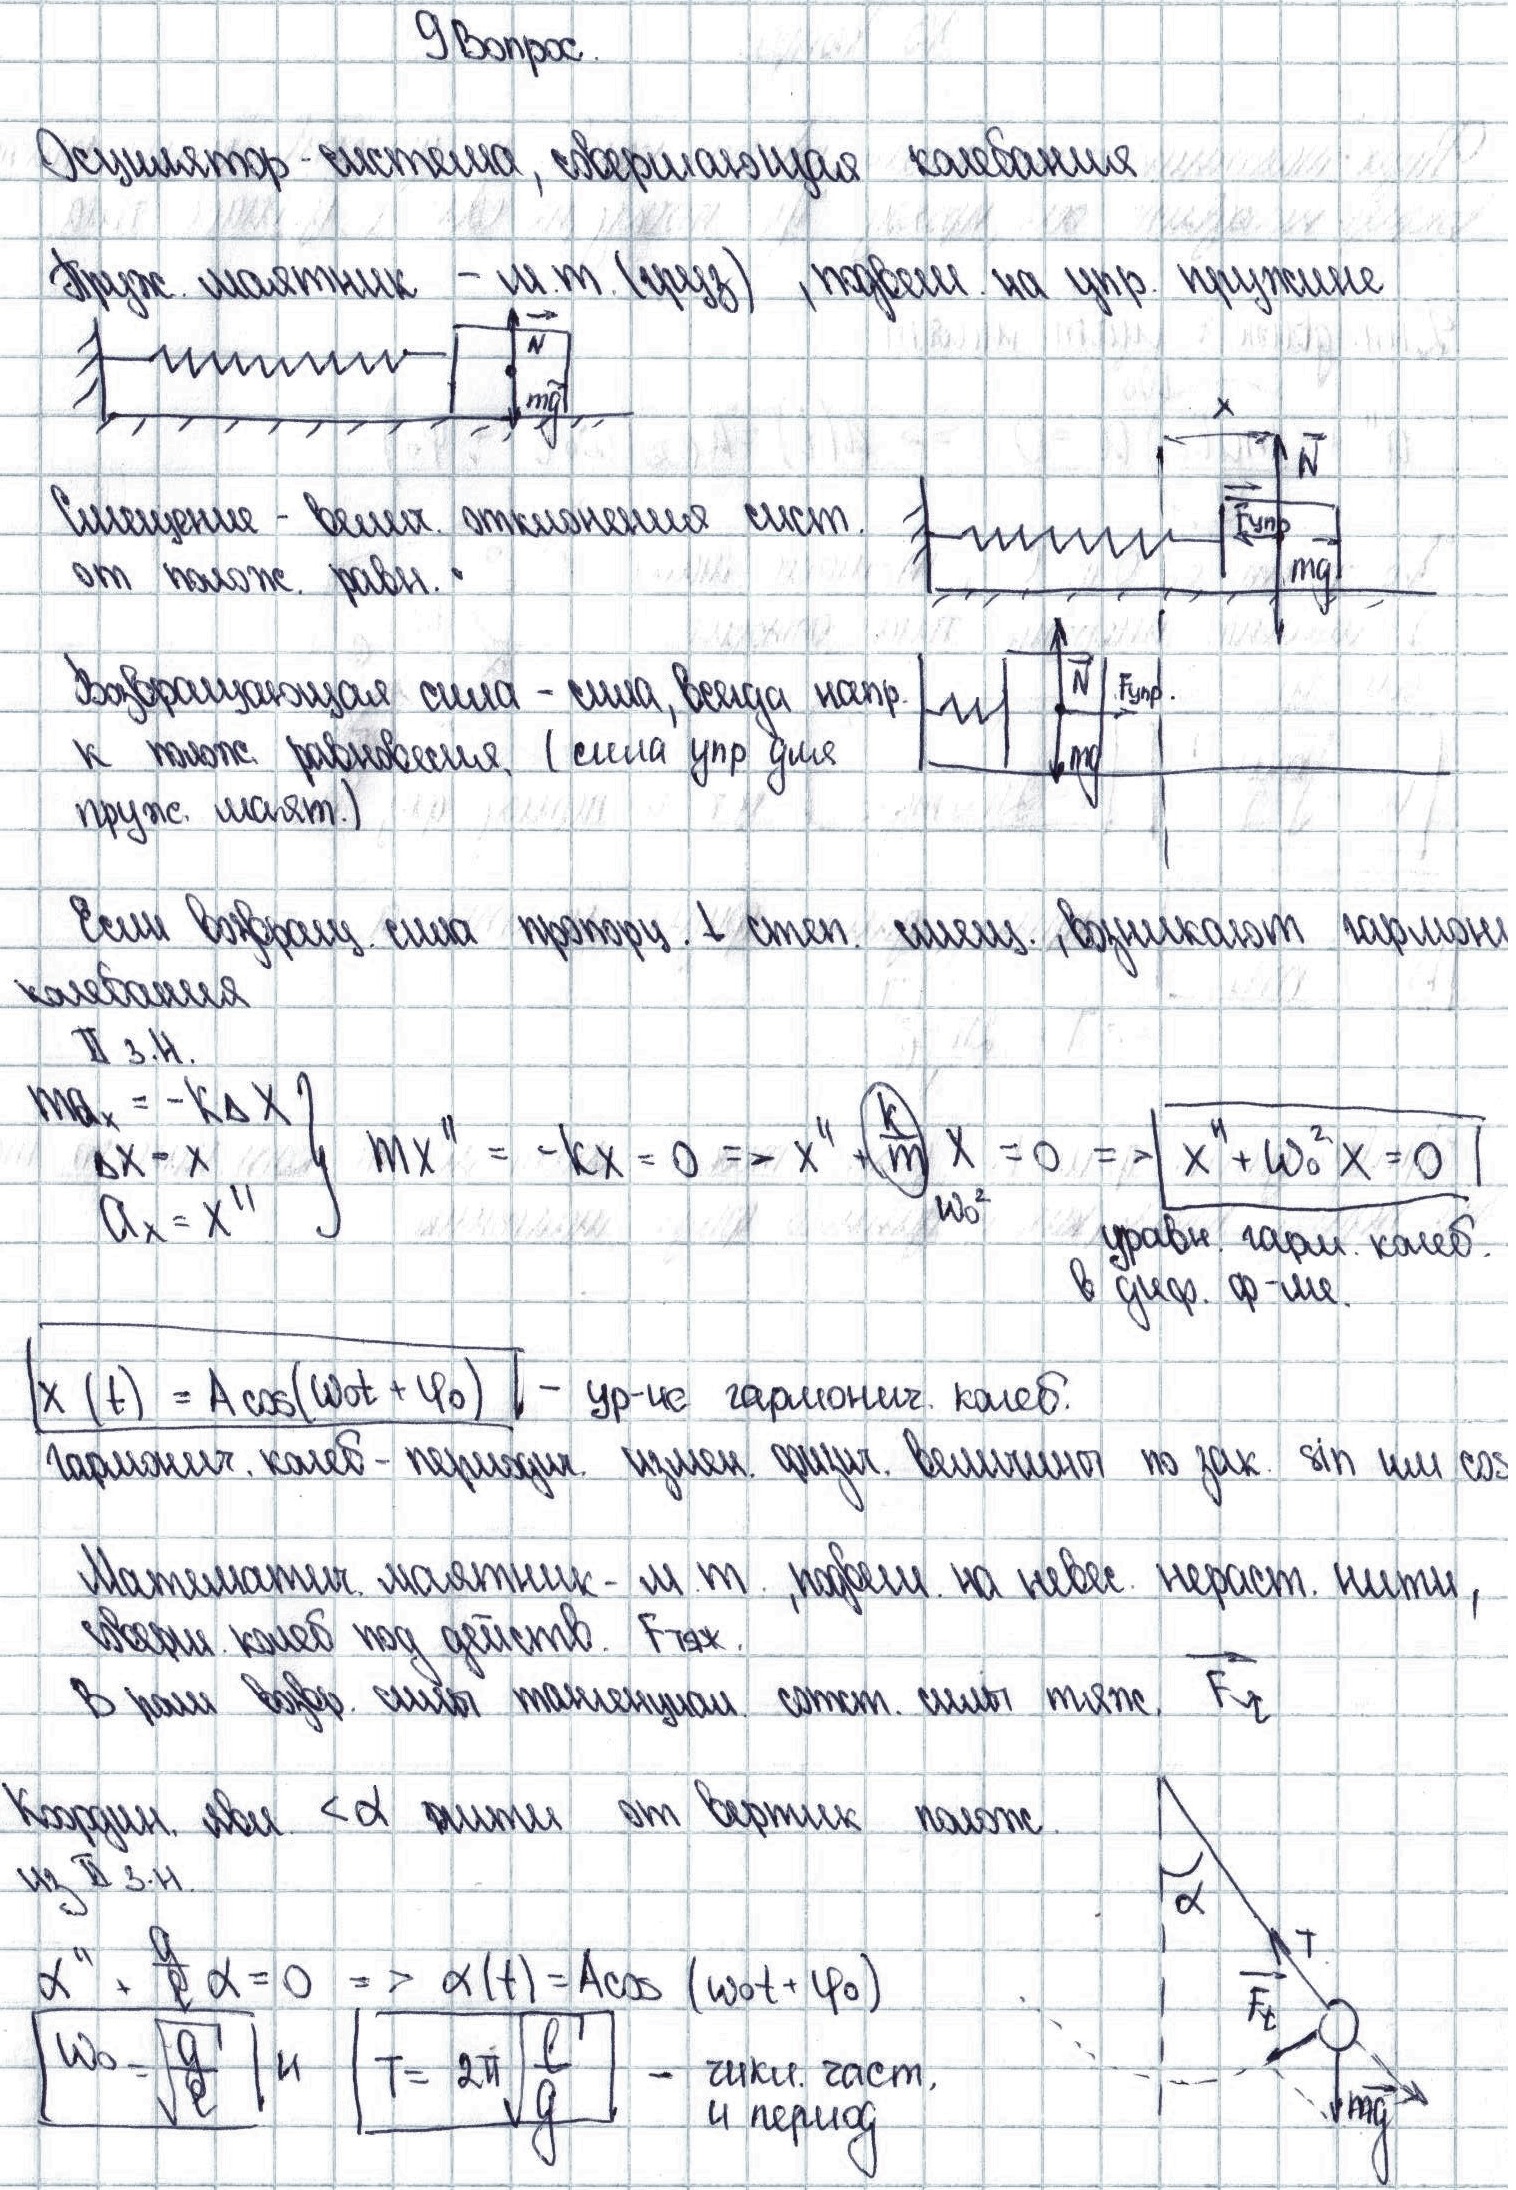 9 Вопрос.
Осцилятор - система, совершающая колебания
Пруж. маятник - м.т. (груз), подвеш. на упр. пружине
N
mg
x
N
Fупр
mg
Смещение - велич. отклонения сист.
от полож. равн.
Возвращающая сила - сила, всегда напр.
к полож. равновесия. (сила упр для
пруж. маят.)
N
Fупр.
mg
Если возвращ. сила пропорц. 1 степ. смещ., возникают гармони
колебания
II з.Н.
maₓ = -kΔX
ΔX = x
aₓ = x''
mx'' = -kx = 0 => x'' + k/m x = 0 => x'' + ω₀² x = 0
ω₀²
уравн. гарм. колеб.
в диф. ф-ме.
x(t) = A cos(ω₀t + φ₀) - ур-ие гармонич. колеб.
гармонич. колеб - периодич. измен. физич. величины по зак. sin или cos
Математич. маятник - м.т., подвеш. на невес. нераст. нити,
соверш. колеб под действ. Fтяж.
В роли возвр. силы тангенциал. сост. силы тяж. Fτ
Координ. явл. <α нити от вертик полож.
из II з.Н.
α'' + g/ℓ α = 0 => α(t) = A cos (ω₀t + φ₀)
ω₀ = √g/ℓ и T = 2π√ℓ/g - цикл. част.
и период
α
T
Fτ
mg